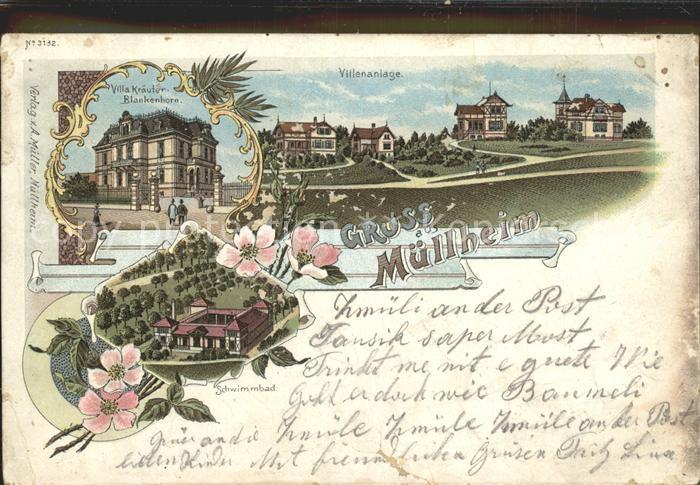 No 3132.
Verlag v. A. Müller, Müllheim.
Villa Kräuter-
Blankenhorn.
Villenanlage.
Gruss
Müllheim
Schwimmbad.
Zmüli an der Post
Tausik saper Most
Trinkt me nit e guete Wie
Goht er doch wie Baumeli
Zmüle Zmüle Zmüle an der Post
Grüse an die
lieben Kinder Mit freundlichen Grüsen Fritz Lina